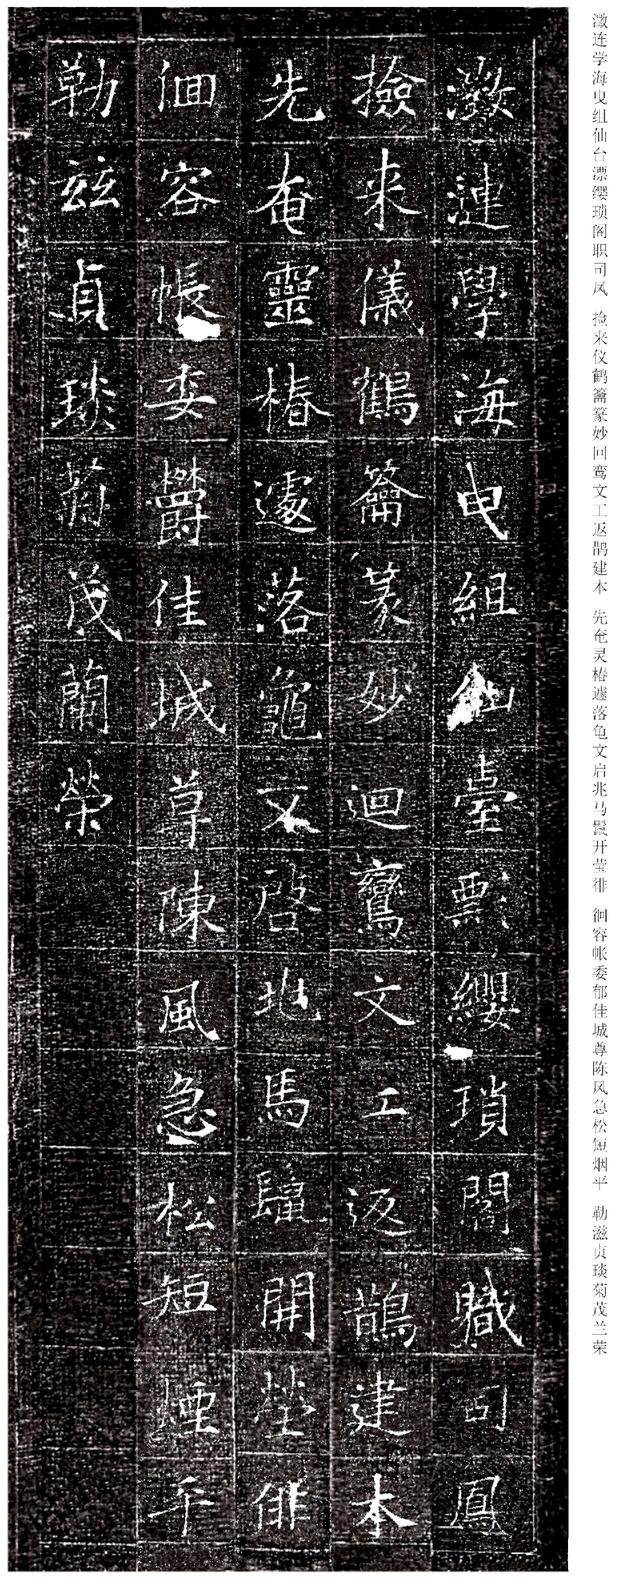 澂连学海曳组仙台漂缨琐阁职司凤 捡来仪鹤籥篆妙回鸾文工返鹊建本 先奄灵椿遽落龟文启兆马鬣开莹徘 徊容帐委郁佳城尊陈风急松短烟平 勒滋贞琰菊茂兰荣
澂漣學海曳組仙臺飄纓瑣閣職司鳳
撿来儀鶴籥篆妙迴鸞文工返鵲建本
先奄靈椿遽落龜文啓兆馬鬣開塋徘
徊容帳委欝佳城草陳風急松短煙平
勒茲貞琰菊茂蘭榮